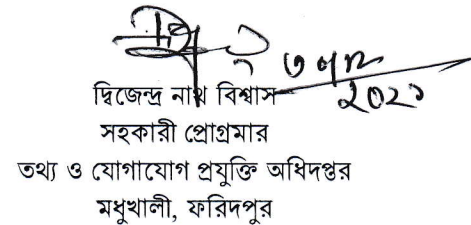 দ্বিজেন্দ্র নাথ বিশ্বাস
সহকারী প্রোগ্রমার
তথ্য ও যোগাযোগ প্রযুক্তি অধিদপ্তর
মধুখালী, ফরিদপুর